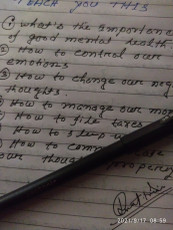 TEACH YOU THIS
① what's the importance
of good mental health
② How to control our
emotions
③ How to change our neg
thoughts.
How to manage our mon
How to file taxes
How to
How to comm
our though properly
2021/8/17 08:59